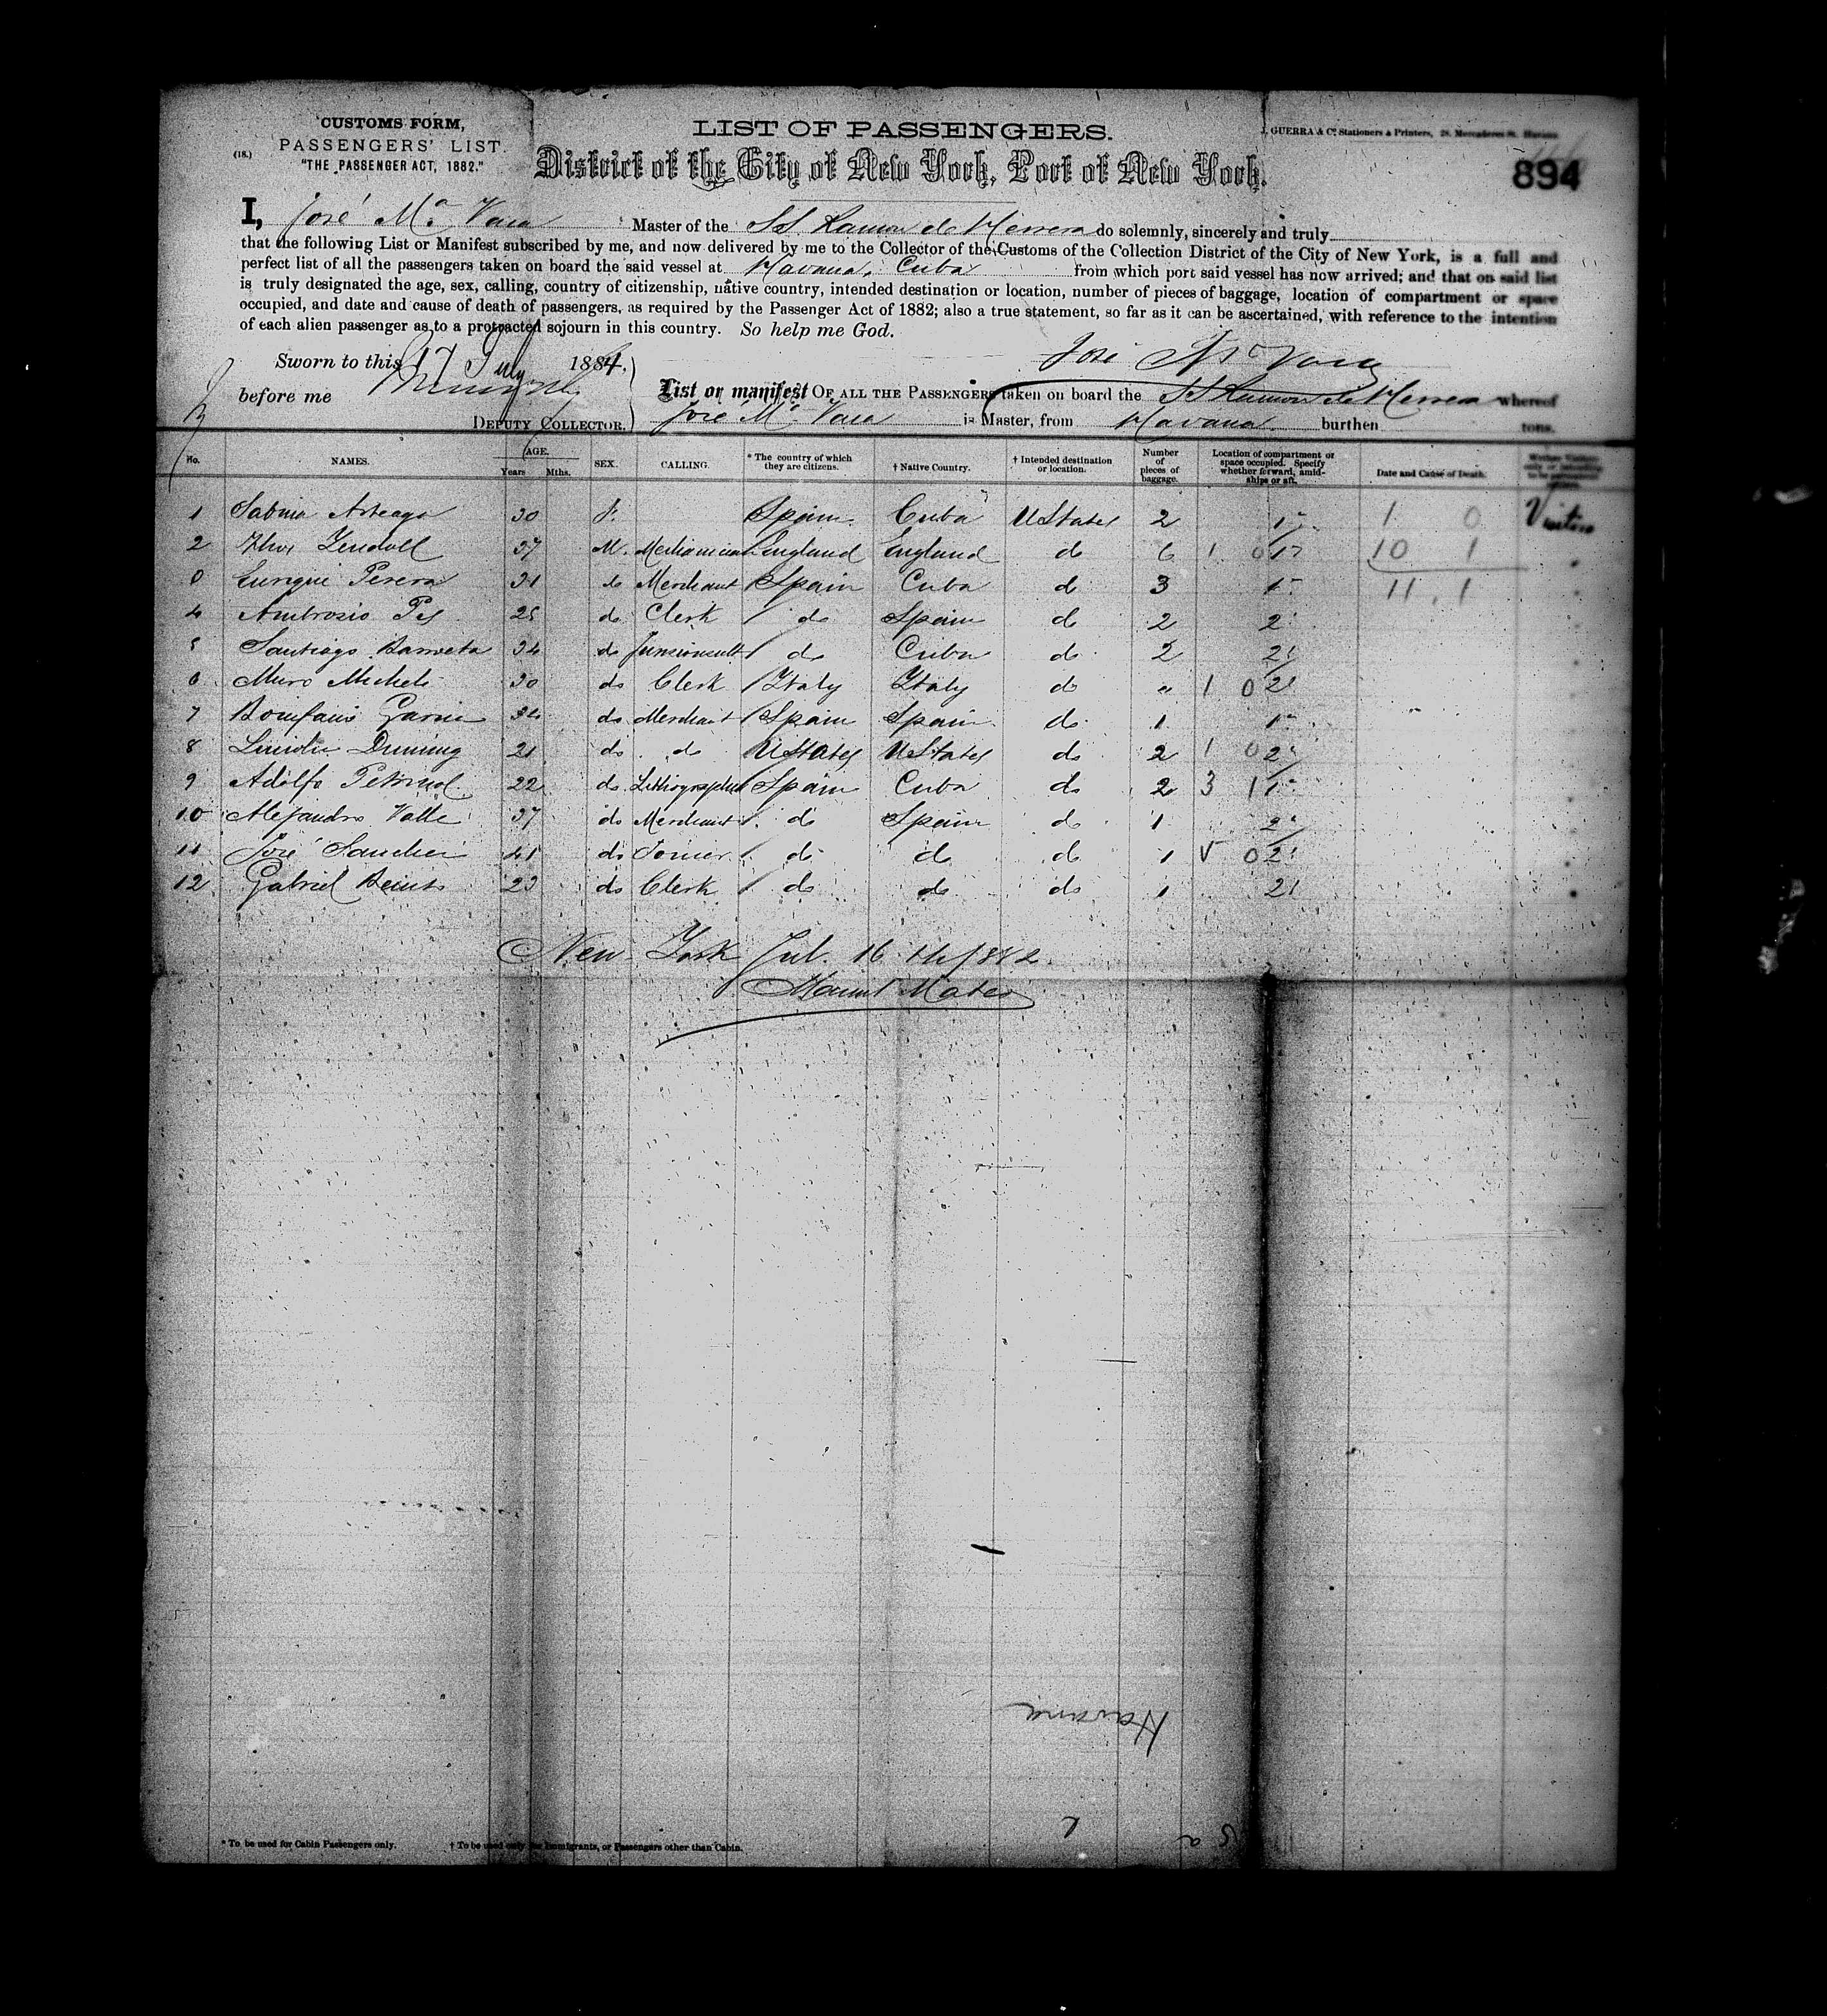 CUSTOMS FORM,
PASSENGERS' LIST.
(18.)
"THE PASSENGER ACT, 1882."
LIST OF PASSENGERS.
J. GUERRA & Co. Stationers & Printers, 28. Mercaderes St. Havana
District of the City of New York, Port of New York.
894
I, José Ma Vara Master of the SS Ramon de Herrera do solemnly, sincerely and truly
that the following List or Manifest subscribed by me, and now delivered by me to the Collector of the Customs of the Collection District of the City of New York, is a full and
perfect list of all the passengers taken on board the said vessel at Havana, Cuba from which port said vessel has now arrived; and that on said list
is truly designated the age, sex, calling, country of citizenship, native country, intended destination or location, number of pieces of baggage, location of compartment or space
occupied, and date and cause of death of passengers, as required by the Passenger Act of 1882; also a true statement, so far as it can be ascertained, with reference to the intention
of each alien passenger as to a protracted sojourn in this country. So help me God.
Sworn to this 17 July 1884.
José Ma Vara
before me
DEPUTY COLLECTOR.
List or manifest OF ALL THE PASSENGERS taken on board the SS Ramon de Herrera whereof
José Ma Vara is Master, from Havana burthen tons.
No. NAMES. AGE. Years Mths. SEX. CALLING. * The country of which they are citizens. † Native Country. † Intended destination or location. Number of pieces of baggage. Location of compartment or space occupied. Specify whether forward, amidships or aft. Date and Cause of Death.
1 Sabina Arteaga 30 F. Spain. Cuba UStates 2 1a 1 0 Visitors
2 37 M. England England do 6 1 0 1a 10 1
3 Enrique Perera 31 do Merchant Spain Cuba do 3 1a 11 . 1
4 Ambrosio 25 do Clerk do Spain do 2 2a
5 Santiago 34 do do Cuba do 2 2a
6 Muro Michele 30 do Clerk Italy Italy do " 1 0 2a
7 34 do Merchant Spain Spain do 1 1a
8 21 do do UStates UStates do 2 1 0 2a
9 Adolfo 22 do Lithographer Spain Cuba do 2 3 1 1a
10 Alejandro Valle 37 do Merchant do Spain do 1 2a
11 José Sanchez 41 do do do do 1 0 2a
12 Gabriel 23 do Clerk do do do 1 2a
New York Jul. 16 th 1882
Mateo
Havana
* To be used for Cabin Passengers only. † To be used only for Immigrants, or Passengers other than Cabin.